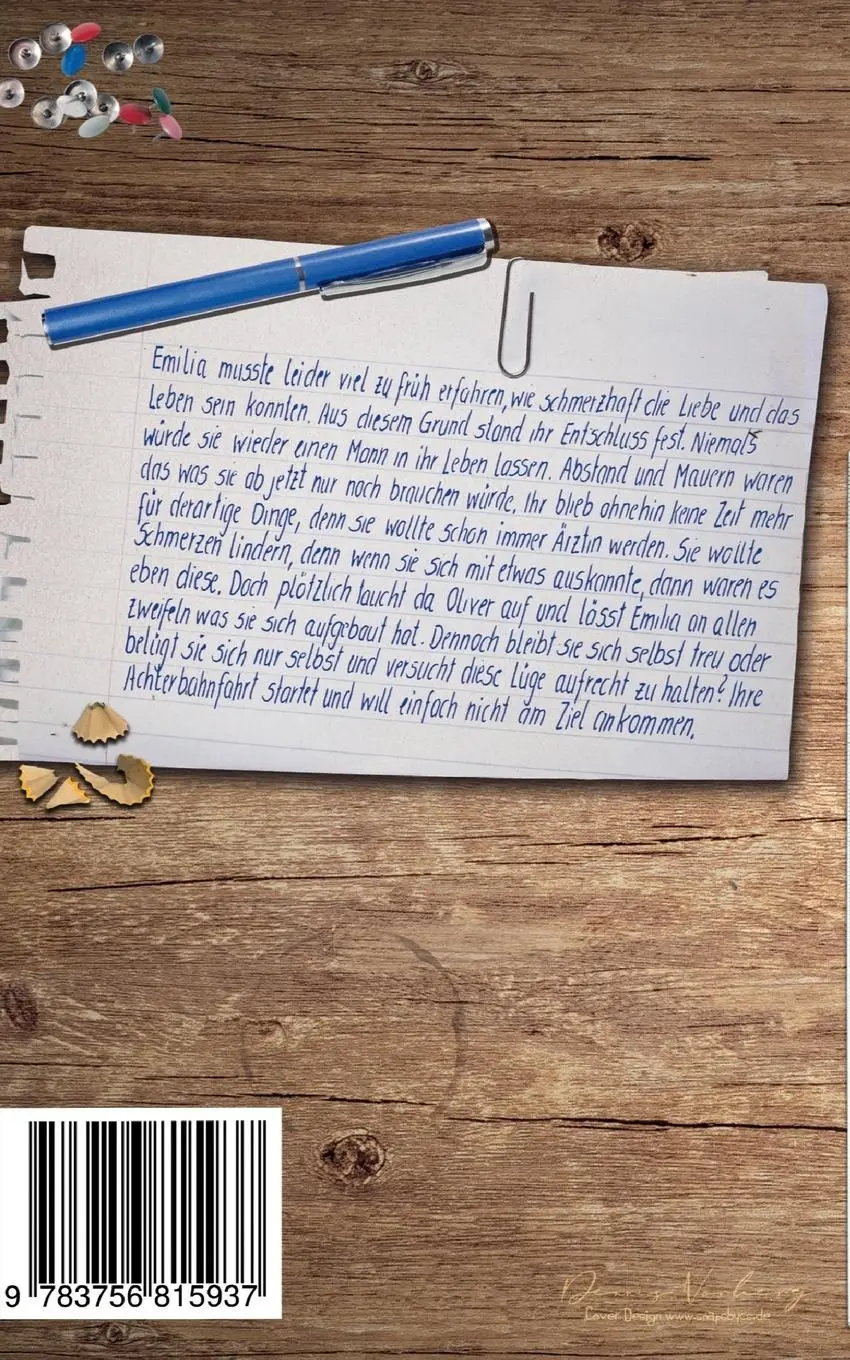 Emilia musste leider viel zu früh erfahren, wie schmerzhaft die Liebe und das
Leben sein konnten. Aus diesem Grund stand ihr Entschluss fest. Niemals
würde sie wieder einen Mann in ihr Leben lassen. Abstand und Mauern waren
das was sie ab jetzt nur noch brauchen würde. Ihr blieb ohnehin keine Zeit mehr
für derartige Dinge, denn sie wollte schon immer Ärztin werden. Sie wollte
Schmerzen lindern, denn wenn sie sich mit etwas auskannte, dann waren es
eben diese. Doch plötzlich taucht da Oliver auf und lässt Emilia an allen
zweifeln was sie sich aufgebaut hat. Dennoch bleibt sie sich selbst treu oder
belügt sie sich nur selbst und versucht diese Lüge aufrecht zu halten? Ihre
Achterbahnfahrt startet und will einfach nicht am Ziel ankommen.
9 783756 815937
Cover Design www.snapsbycs.de